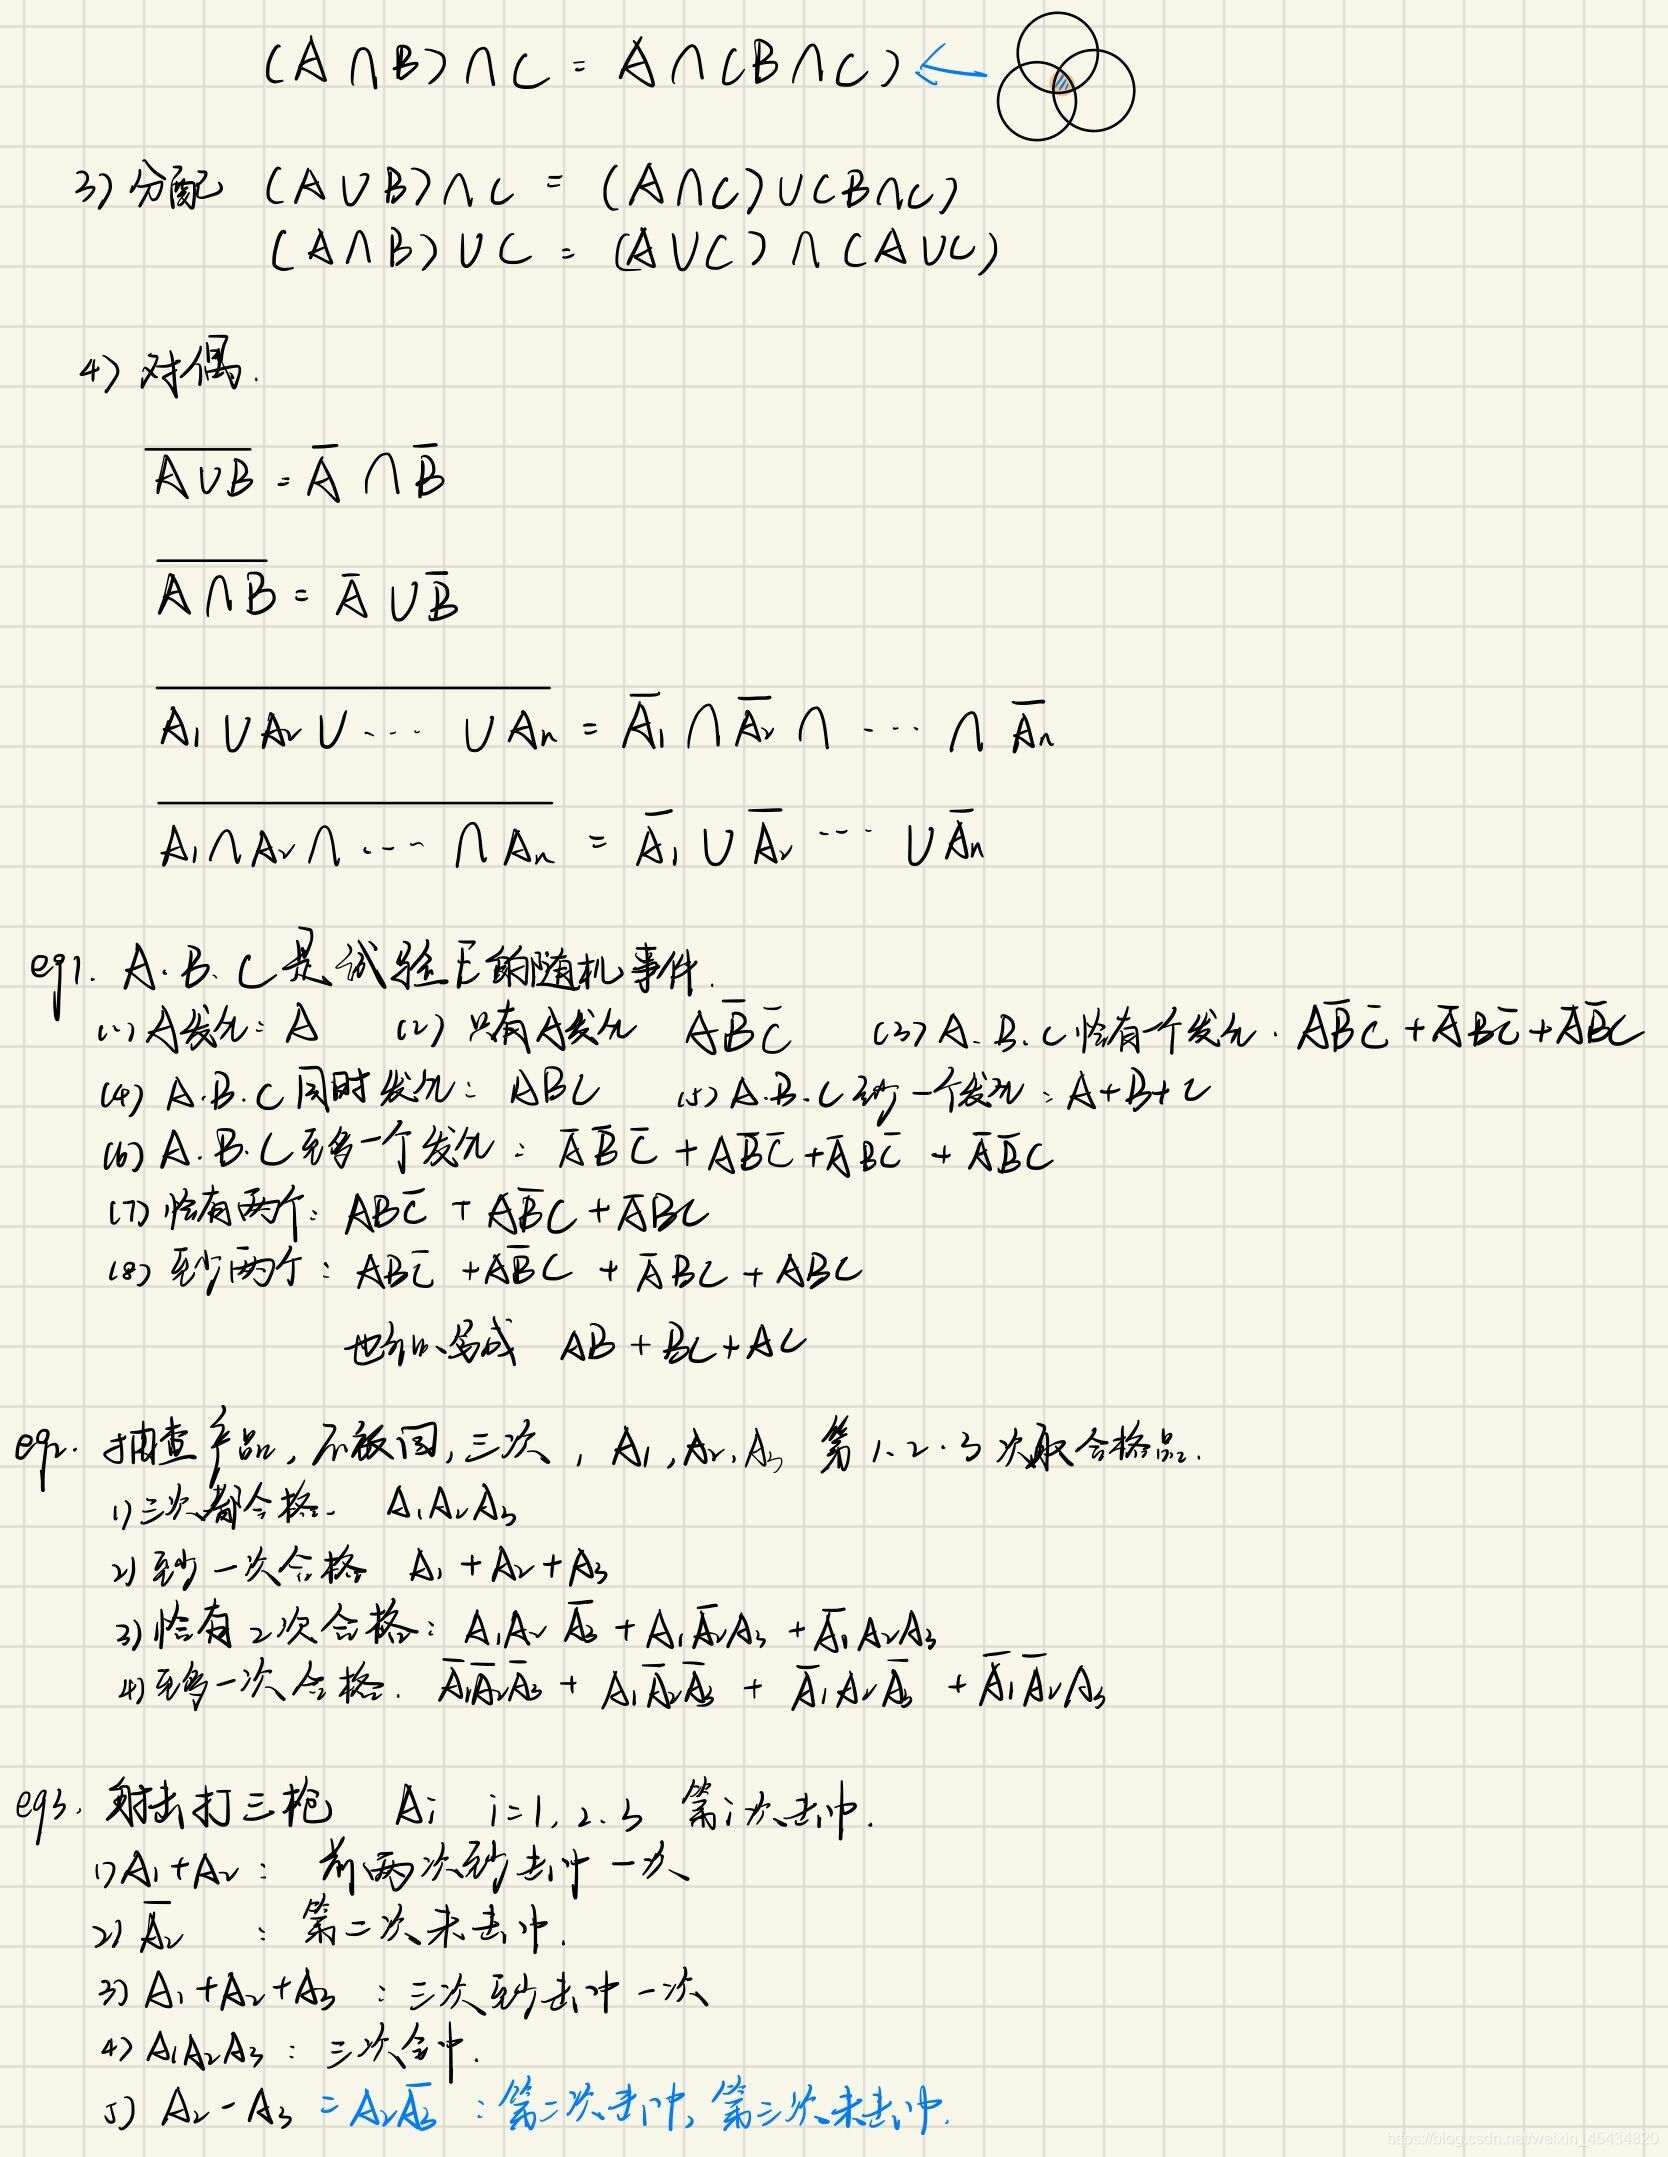 (A∩B)∩C = A∩(B∩C) ←
3) 分配 (A∪B)∩C = (A∩C)∪(B∩C)
(A∩B)∪C = (A∪C)∩(A∪C)
4) 对偶.
A̅∪̅B̅ = A̅ ∩ B̅
A̅∩̅B̅ = A̅ ∪ B̅
\overline{A₁∪A₂∪···∪Aₙ} = A̅₁∩A̅₂∩···∩A̅ₙ
\overline{A₁∩A₂∩···∩Aₙ} = A̅₁∪A̅₂···∪A̅ₙ
eg1. A.B.C是试验E的随机事件.
(1) A发生: A (2) 只有A发生 AB̅C̅ (3) A.B.C恰有一个发生. AB̅C̅ + A̅BC̅ + A̅B̅C
(4) A.B.C同时发生: ABC (5) A.B.C至少一个发生: A+B+C
(6) A.B.C至多一个发生: A̅B̅C̅ + AB̅C̅ + A̅BC̅ + A̅B̅C
(7) 恰有两个: ABC̅ + AB̅C + A̅BC
(8) 至少两个: ABC̅ + AB̅C + A̅BC + ABC
也可以写成 AB + BC + AC
eg2. 抽查产品, 不放回, 三次, A₁, A₂, A₃ 第1.2.3次取合格品.
1) 三次都合格. A₁A₂A₃
2) 至少一次合格 A₁+A₂+A₃
3) 恰有2次合格: A₁A₂A̅₃ + A₁A̅₂A₃ + A̅₁A₂A₃
4) 至多一次合格. A̅₁A̅₂A̅₃ + A₁A̅₂A̅₃ + A̅₁A₂A̅₃ + A̅₁A̅₂A₃
eg3. 射击打三枪 Aᵢ i=1,2.3 第i次击中.
1) A₁+A₂: 前两次至少击中一次
2) A̅₂ : 第二次未击中.
3) A₁+A₂+A₃ : 三次至少击中一次
4) A₁A₂A₃ : 三次全中.
5) A₂-A₃ = A₂A̅₃ : 第二次击中, 第三次未击中.
https://blog.csdn.net/weixin_45434820